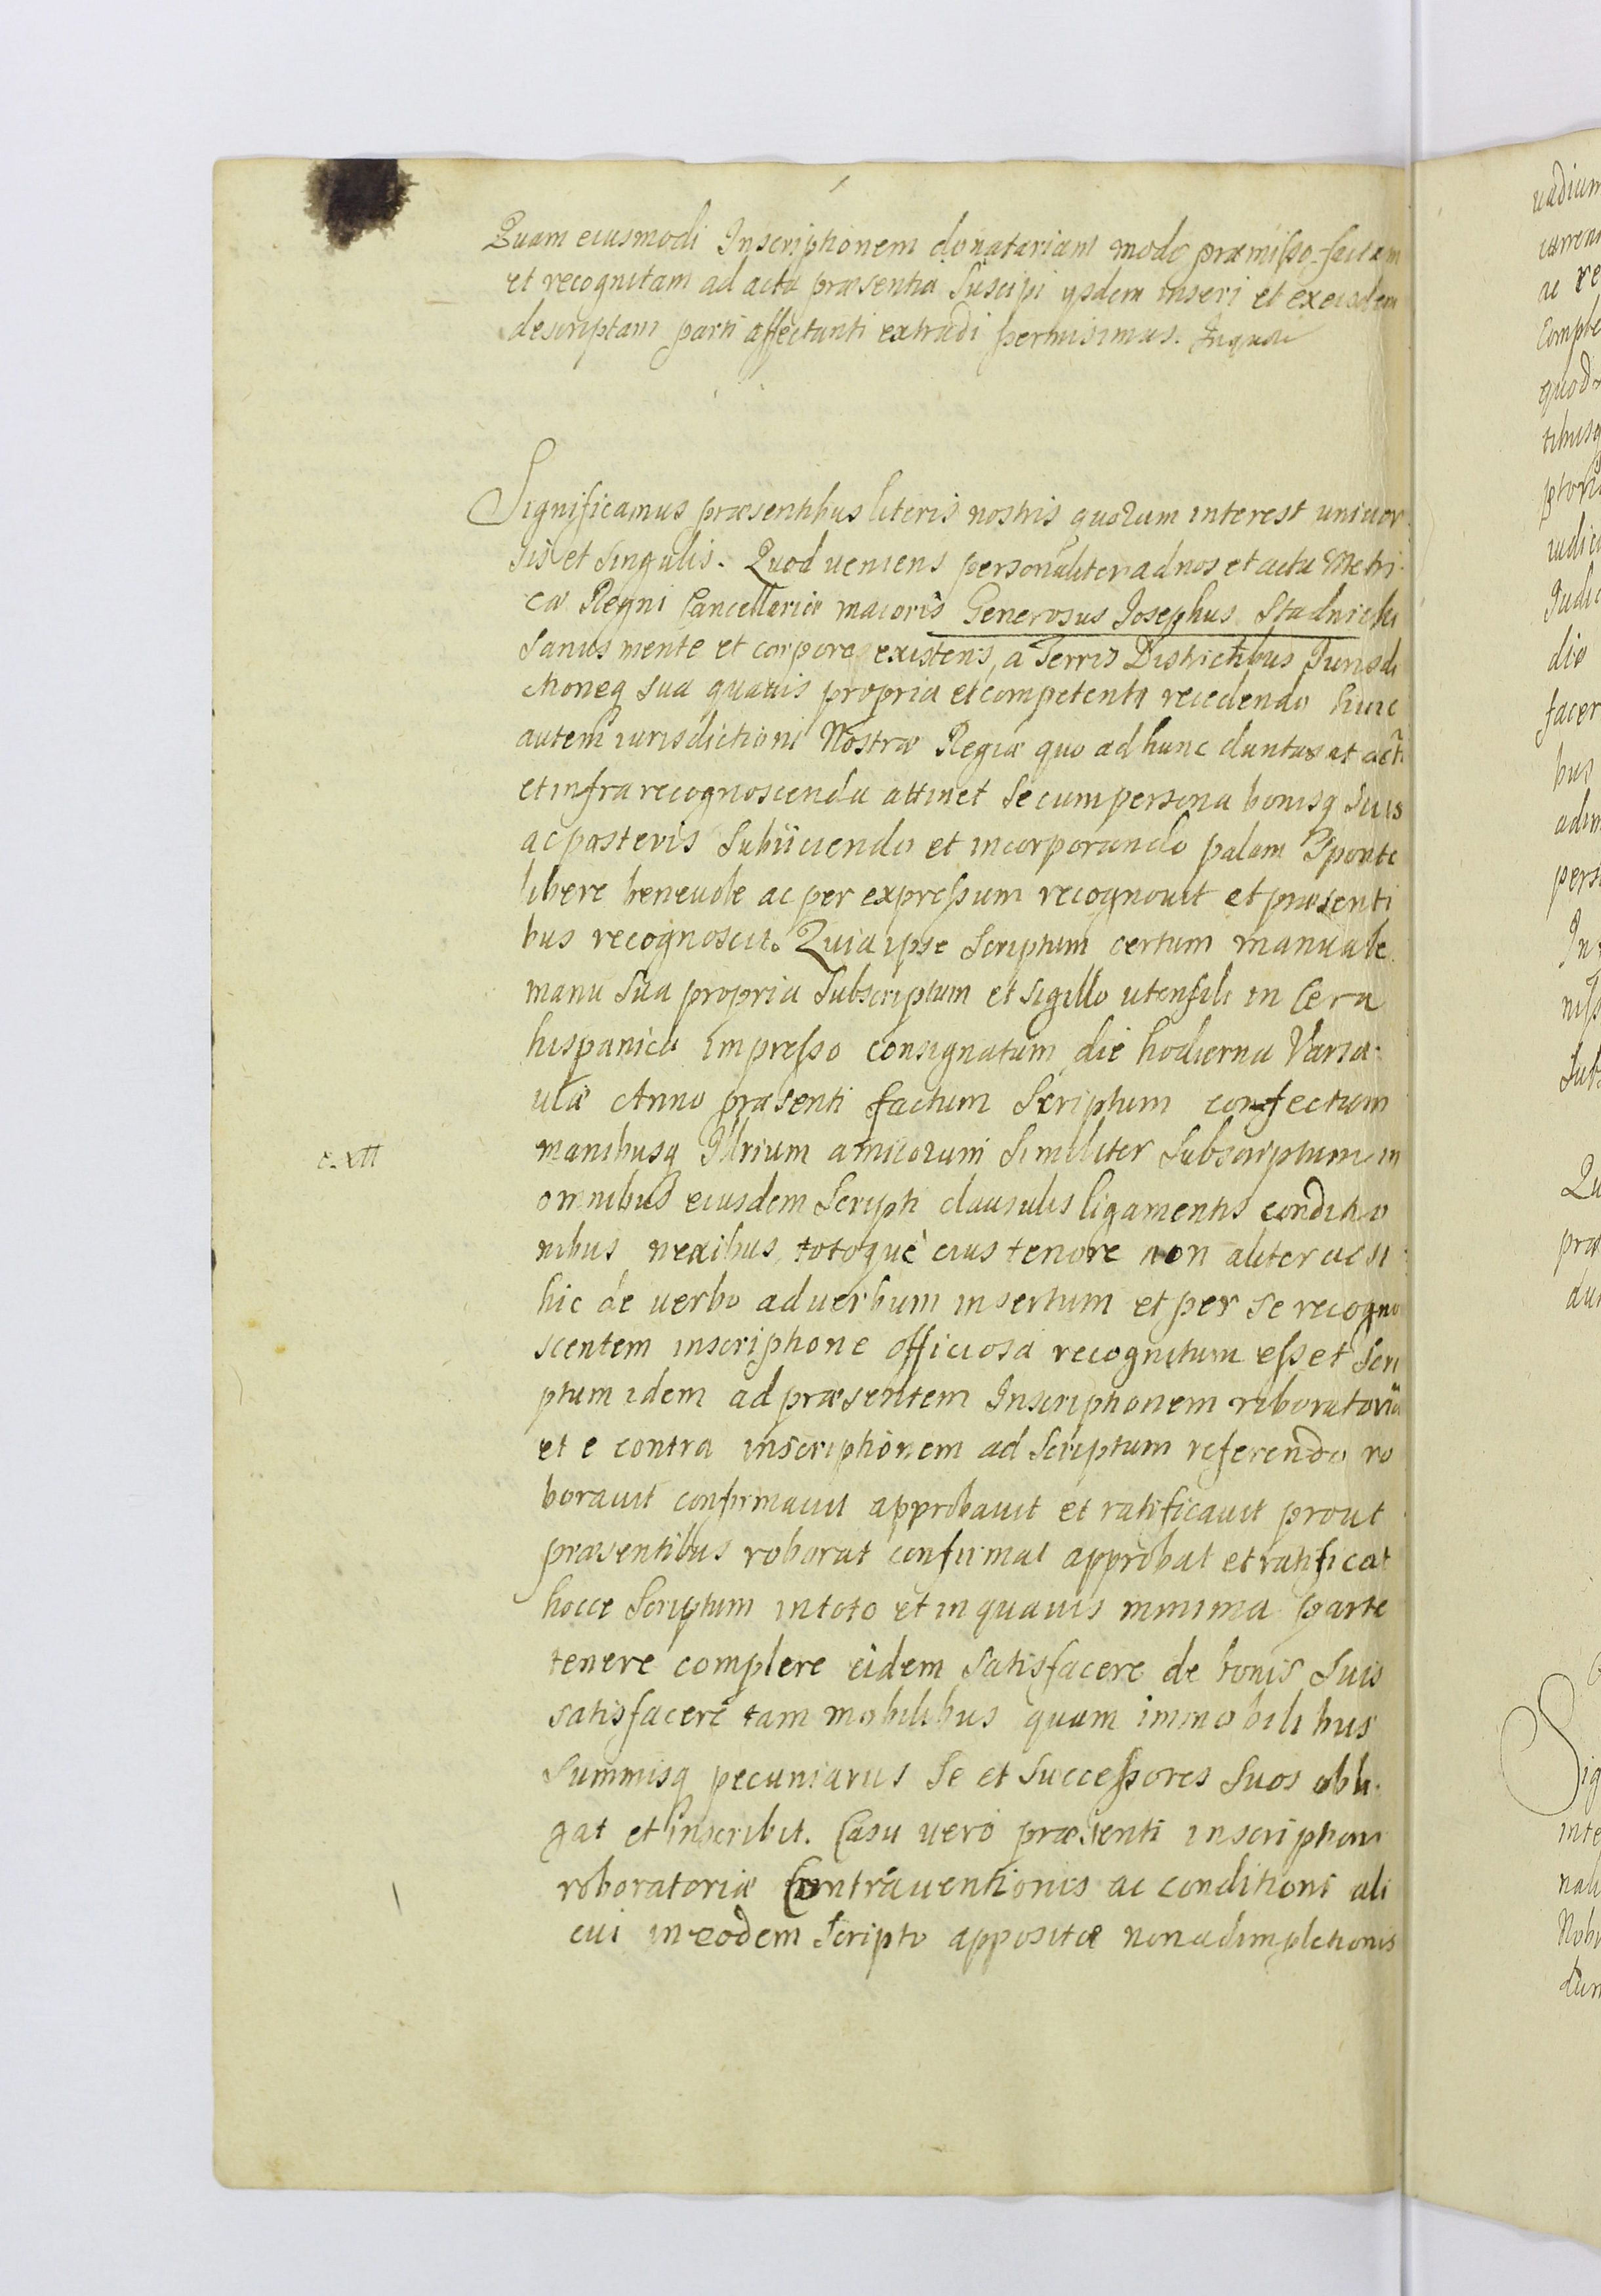 Quam eiusmodi Inscriptionem donatariam modo præmisso factam
et recognitam ad acta præsentia Suscipi ysdem inseri et ex eisdem
descriptam parti affectanti extradi permisimus. In quor
Significamus præsentibus literis nostris quorum interest univer
sis et singulis. Quod veniens personaliter ad nos et acta Metri
cæ Regni Cancellariæ maioris Generosus Josephus Stadnicki
Sanus mente et corpore existens, a Terris Districtibus Jurisdi
ctioneq sua quavis propria et competenti recedendo huic
autem iurisdictioni Nostræ Regiæ quo ad hunc duntaxat act
et infra recognoscenda attinet Se cum persona bonisq Suis
ac posteris Subiiciendo et incorporando palam Sponte
libere benevole ac per expressum recognovit et præsenti
bus recognoscit. Quia ipse Scriptum certum manuale
manu Sua propria Subscriptum et sigillo utensili in Cera
hispanica impresso consignatum die hodierna Varsa
viæ Anno præsenti factum Scriptum confectum
manibusq Illrium amicorum Similiter Subscriptum in
omnibus eiusdem Scripti clausulis ligamentis conditio
nibus nexibus, totoque eius tenore non aliter ac si
hic de verbo ad verbum insertum et per Se recogno
scentem inscriptione officiosa recognitum esset Scri
ptum idem ad præsentem Inscriptionem roboratoriã
et e contra inscriptionem ad Scriptum referendo ro
boravit confirmavit approbavit et ratificavit prout
præsentibus roborat confirmat approbat et ratificat
hocce Scriptum in toto et in quavis minima parte
tenere complere eidem Satisfacere de bonis Suis
satisfacere tam mobilibus quam immobilibus
Summisq pecuniarus Se et Successores Suos obli
gat et inscribit. Casu vero præsenti inscriptioni
roboratoriæ Contraventionis ac conditioni ali
cui in eodem Scripto appositæ non adimpletionis